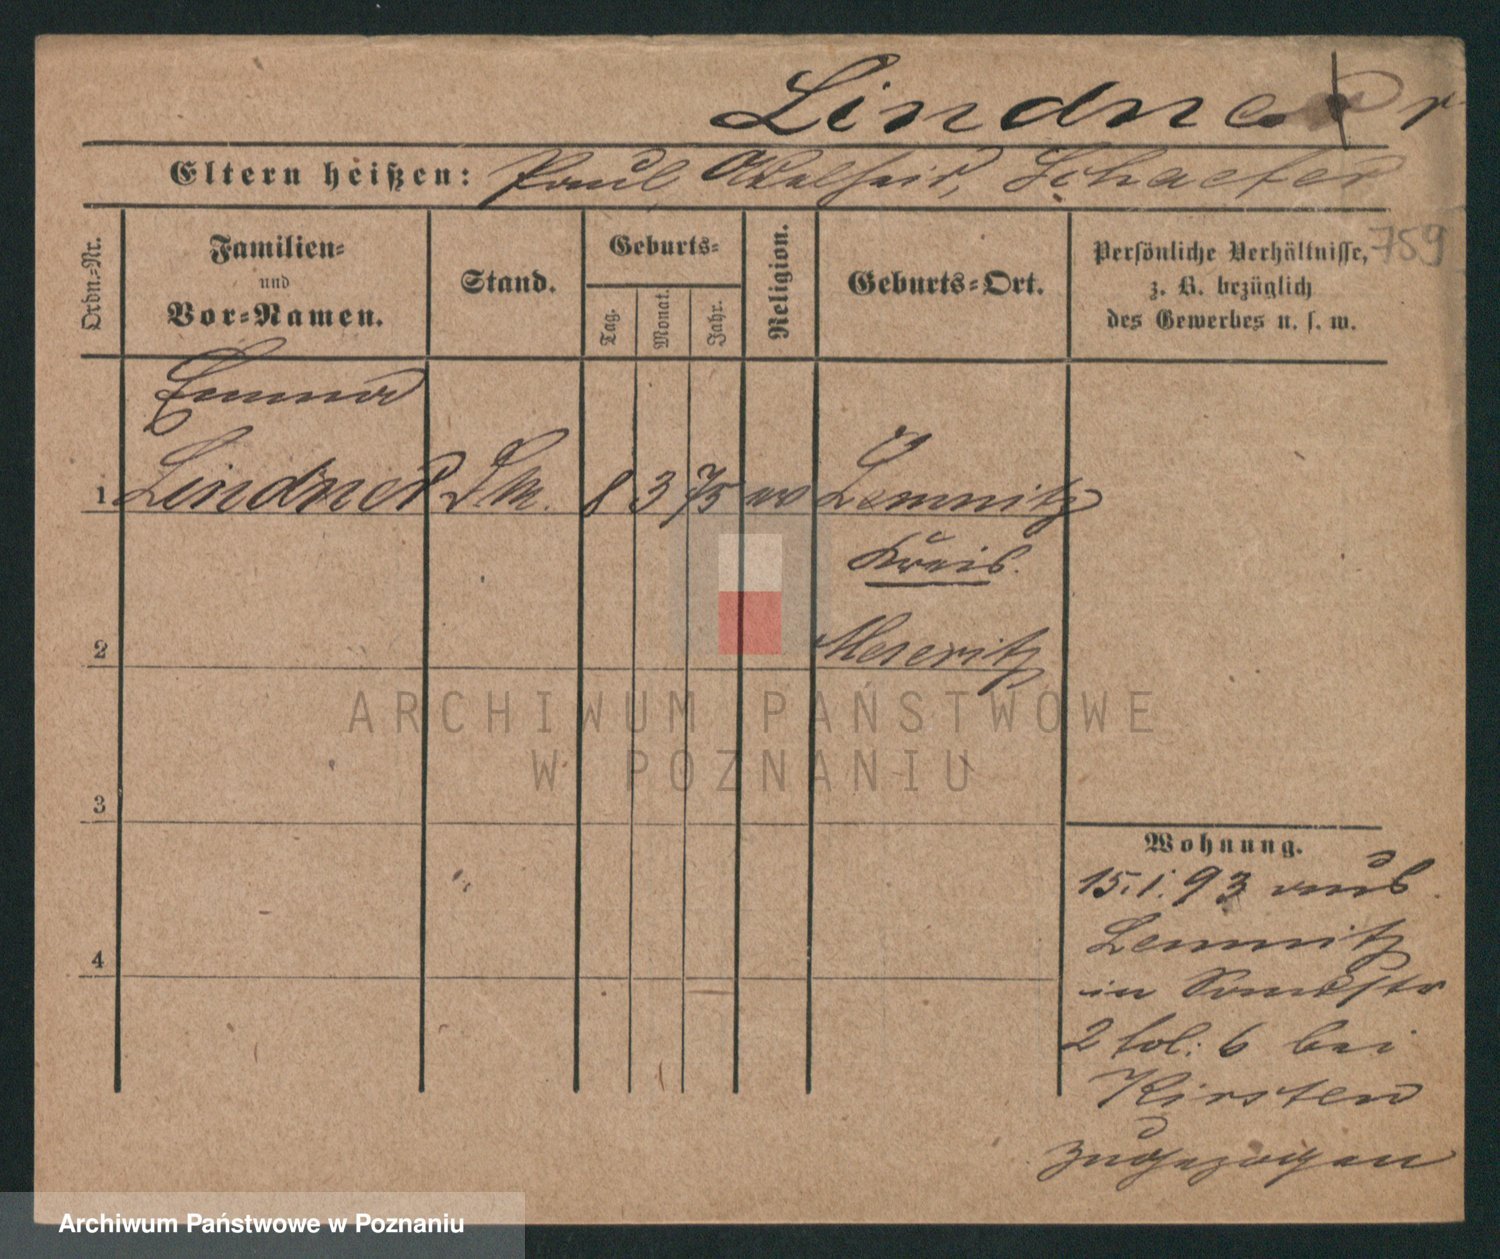 Lindner
Eltern heißen: Paul, Adelheid, Schaefer
759
Ordn.-Nr.
Familien-
und
Vor-Namen.
Stand.
Geburts-
Tag.
Monat.
Jahr.
Religion.
Geburts-Ort.
Persönliche Verhältnisse,
z. B. bezüglich
des Gewerbes u. s. w.
Emma
1 Lindner 8 3 75 Lemnitz
Kreis
2 Meseritz
3
4
Wohnung.
15.1.93 aus
Lemnitz
in
2 fol: 6 bei
Kirsten
zugezogen
ARCHIWUM PAŃSTWOWE
W POZNANIU
Archiwum Państwowe w Poznaniu